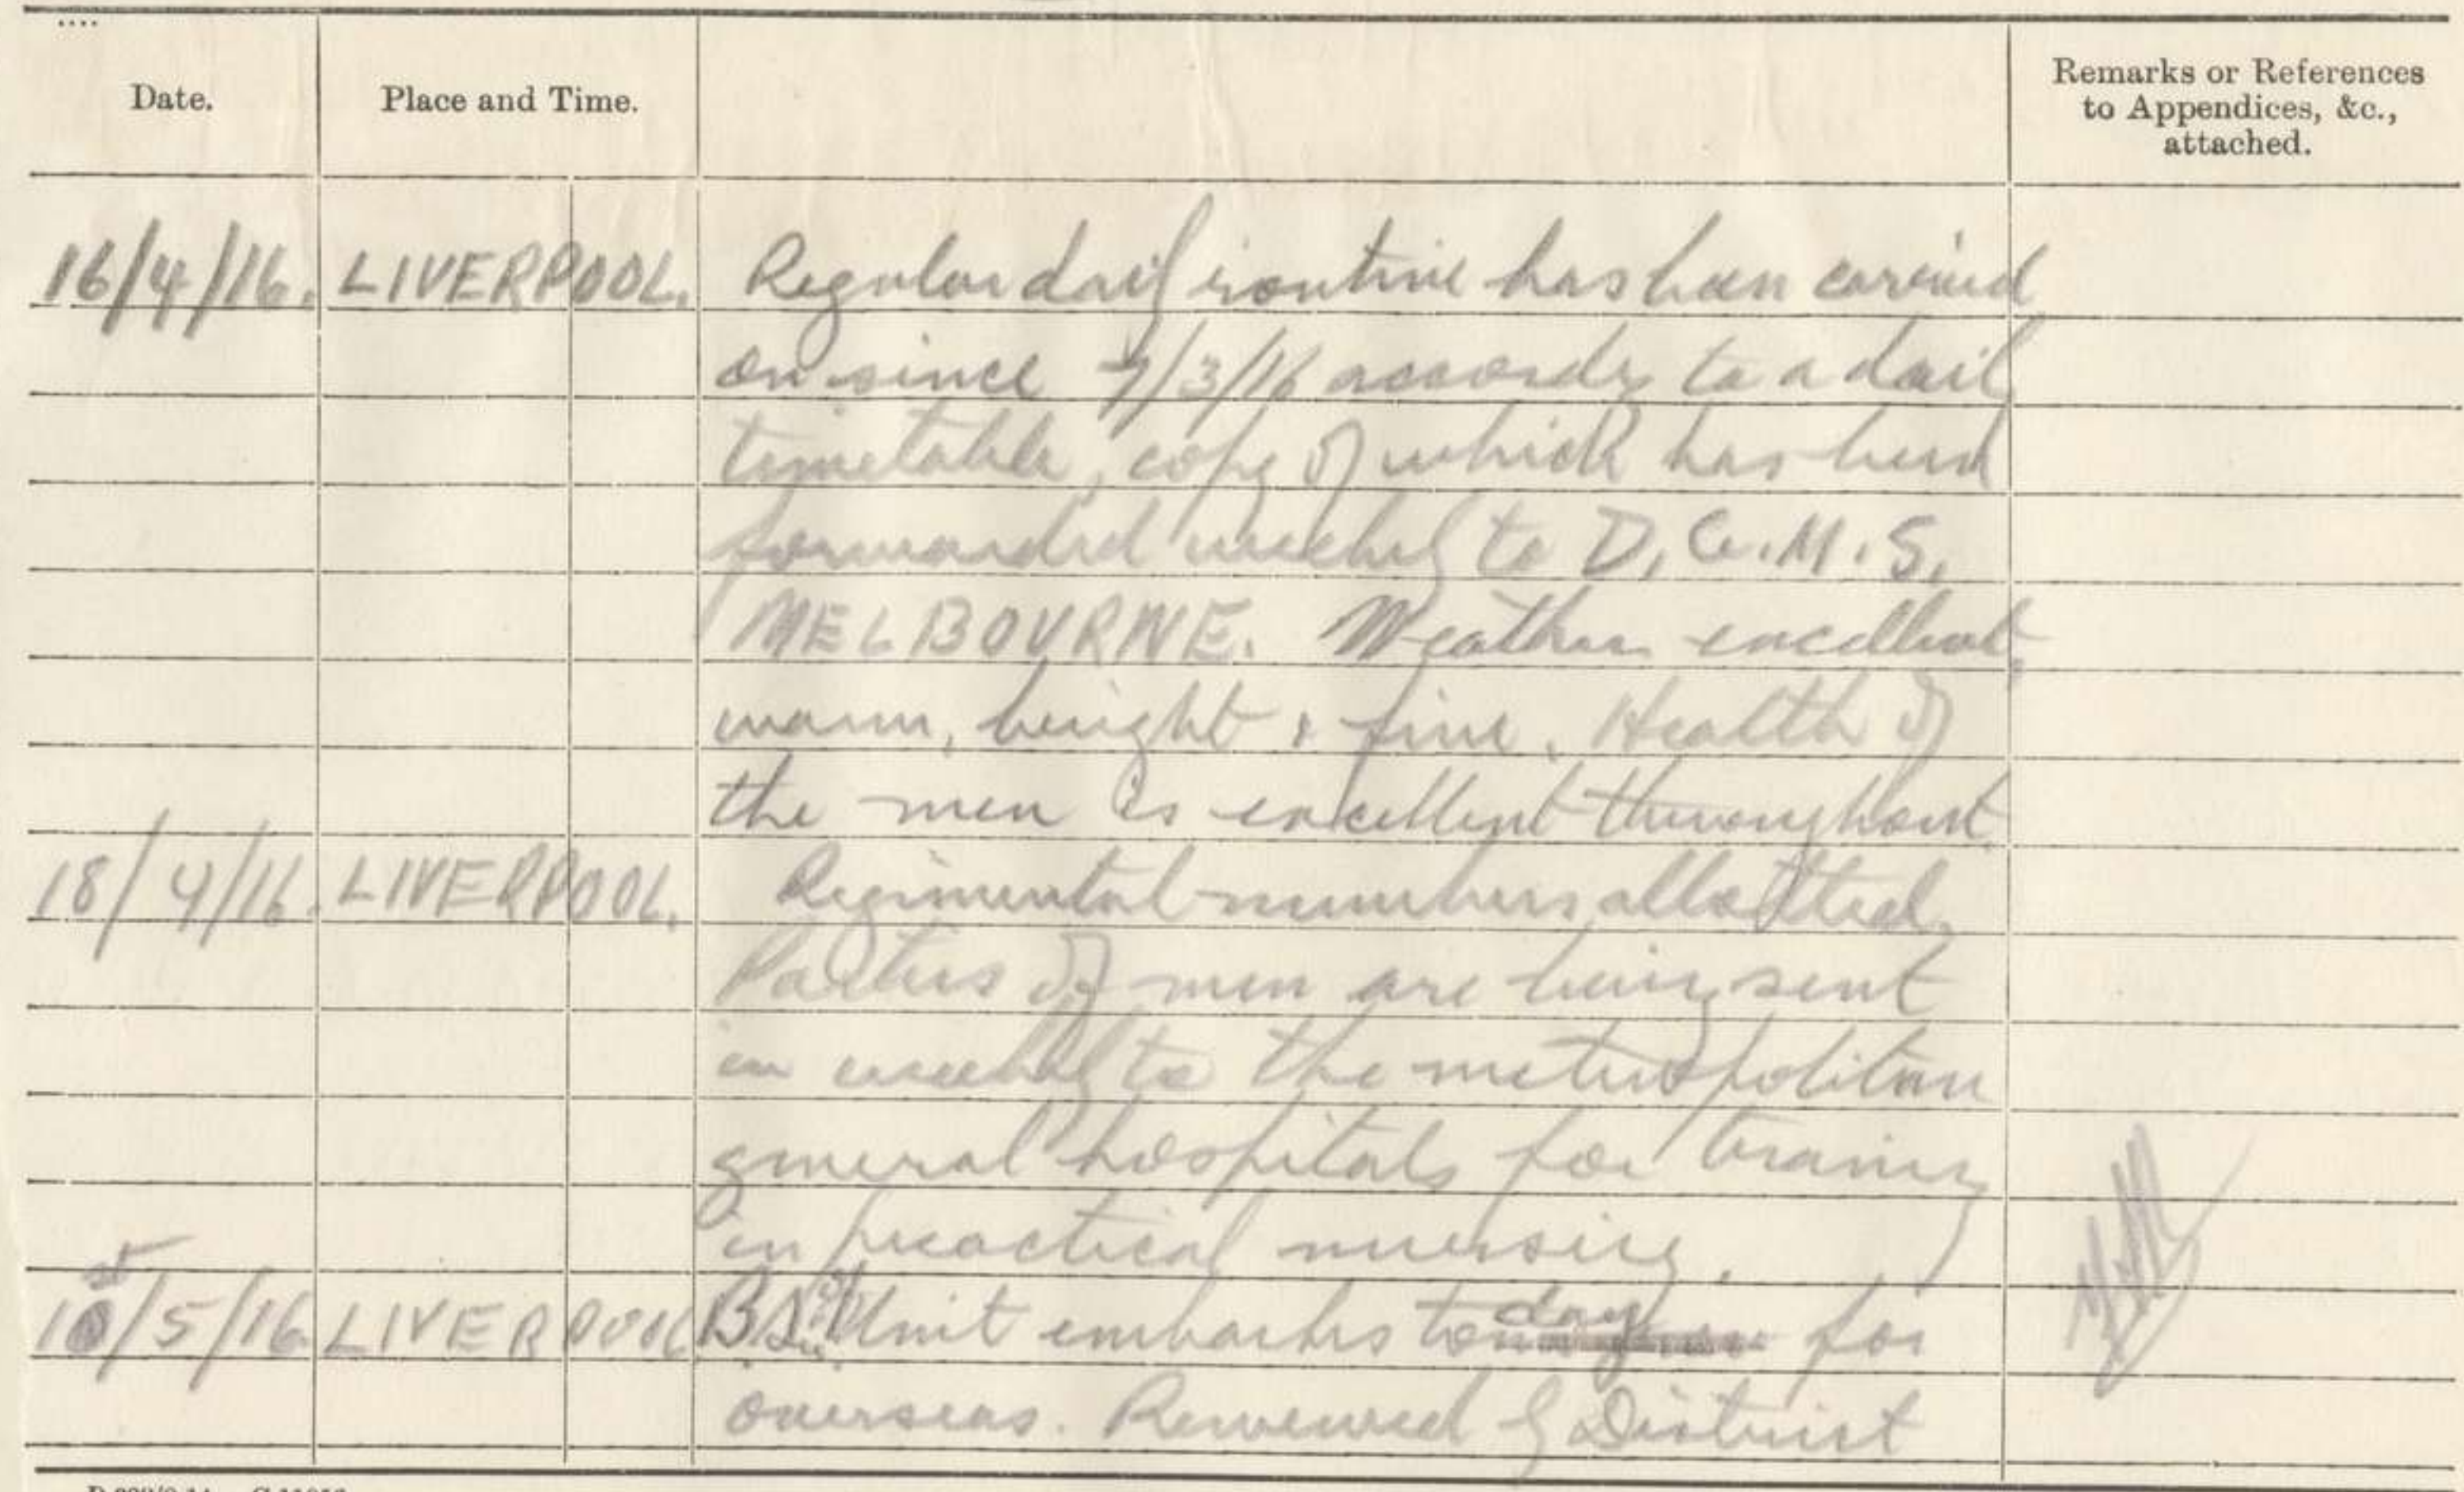 Date.
Place and Time.
Remarks or References
to Appendices, &c.,
attached.
16/4/16. LIVERPOOL. Regular daily routine has been carried
on since 7/3/16 according to a daily
timetable, copy of which has been
forwarded weekly to D.G.M.S.
MELBOURNE. Weather excellent,
warm, bright & fine. Health of
the men is excellent throughout.
18/4/16. LIVERPOOL. Regimental numbers allotted.
Parties of men are being sent
in weekly to the metropolitan
general hospitals for training
in practical nursing.
/5/16 LIVERPOOL Unit embarks today for
overseas. Reviewed by District